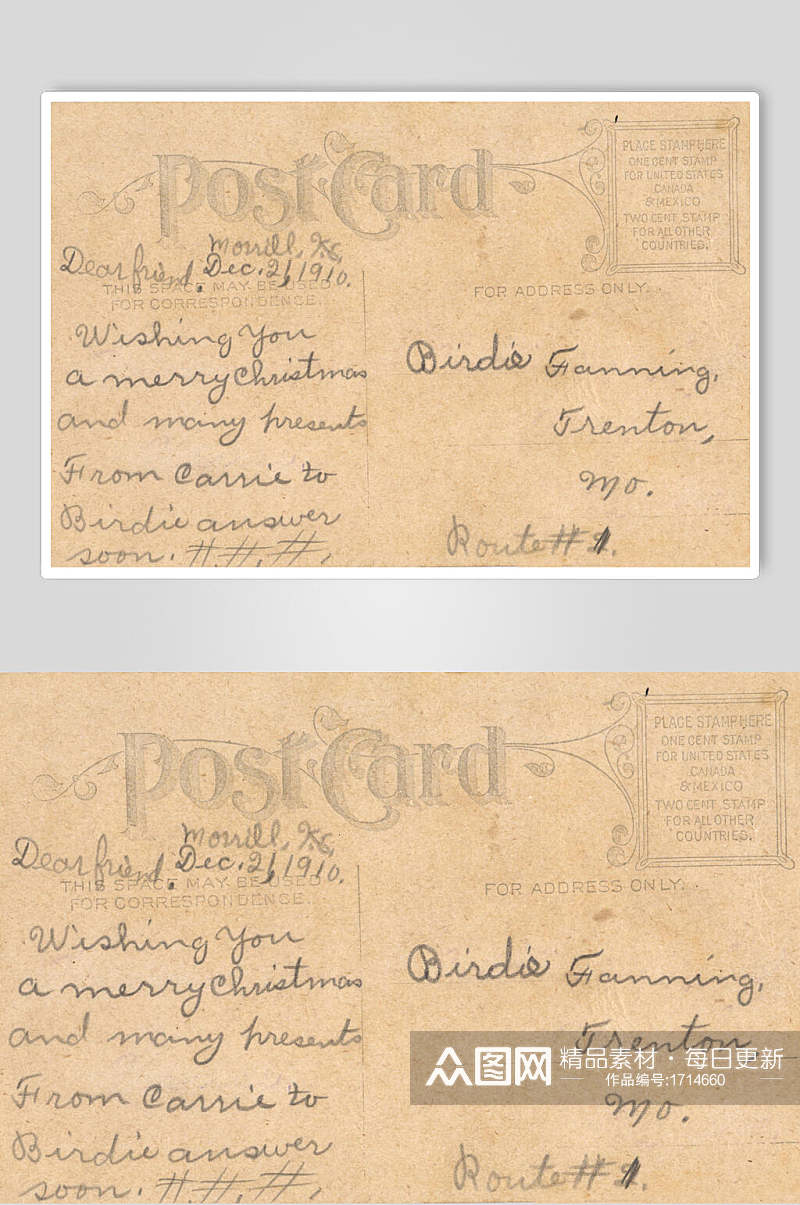 Post Card
PLACE STAMP HERE
ONE CENT STAMP
FOR UNITED STATES
CANADA
& MEXICO
TWO CENT STAMP
FOR ALL OTHER
COUNTRIES.
Morrill, Ks,
Dear friend, Dec. 21, 1910.
THIS SPACE MAY BE USED
FOR CORRESPONDENCE.
FOR ADDRESS ONLY.
Wishing you
a merry Christmas
and many presents
From Carrie to
Birdie answer
soon. #. #. #,
Birdie Fanning,
Trenton,
Mo.
Route # 1.
Post Card
PLACE STAMP HERE
ONE CENT STAMP
FOR UNITED STATES
CANADA
& MEXICO
TWO CENT STAMP
FOR ALL OTHER
COUNTRIES.
Morrill, Ks,
Dear friend, Dec. 21, 1910.
THIS SPACE MAY BE USED
FOR CORRESPONDENCE.
FOR ADDRESS ONLY.
Wishing you
a merry Christmas
and many presents
From Carrie to
Birdie answer
soon. #. #. #,
Birdie Fanning,
Trenton
Mo.
Route # 1.
众图网
精品素材·每日更新
作品编号:1714660